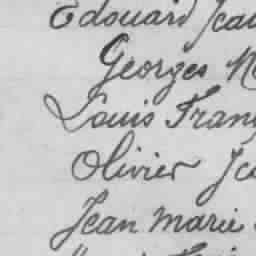 Edouard Jea
Georges
Louis Fran
Olivier
Jean Marie